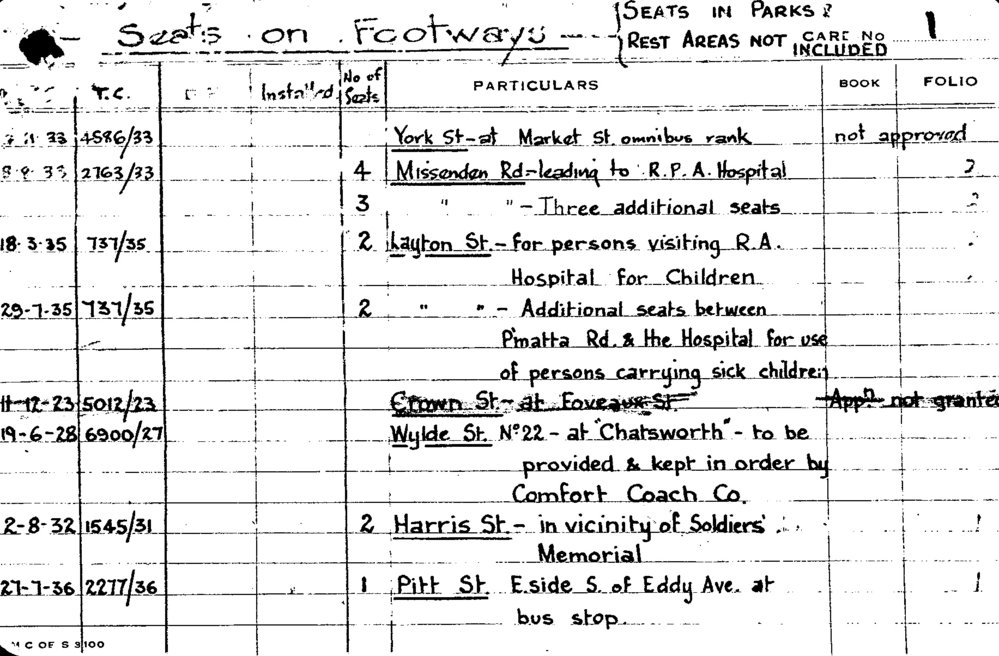 Seats on Footways
{SEATS IN PARKS &
REST AREAS NOT INCLUDED
CARD No 1
T.C. Installed No of Seats PARTICULARS BOOK FOLIO
11-33 4586/33 York St-at Market St. omnibus rank not approved
33 2763/33 4 Missenden Rd-leading to R.P.A. Hospital 2
3 " " - Three additional seats 2
18-3-35 737/35 2 Layton St.-for persons visiting R.A.
Hospital for Children
29-7-35 737/35 2 " " - Additional seats between
P'matta Rd. & the Hospital for use
of persons carrying sick children
11-12-23 5012/23 Crown St.- at Foveaux St. App.n not granted
19-6-28 6900/27 Wylde St. No 22 - at "Chatsworth" - to be
provided & kept in order by
Comfort Coach Co.
2-8-32 1545/31 2 Harris St.- in vicinity of Soldiers' 1
Memorial
27-7-36 2277/36 1 Pitt St. E.side S. of Eddy Ave. at 1
bus stop
M C OF S 3100